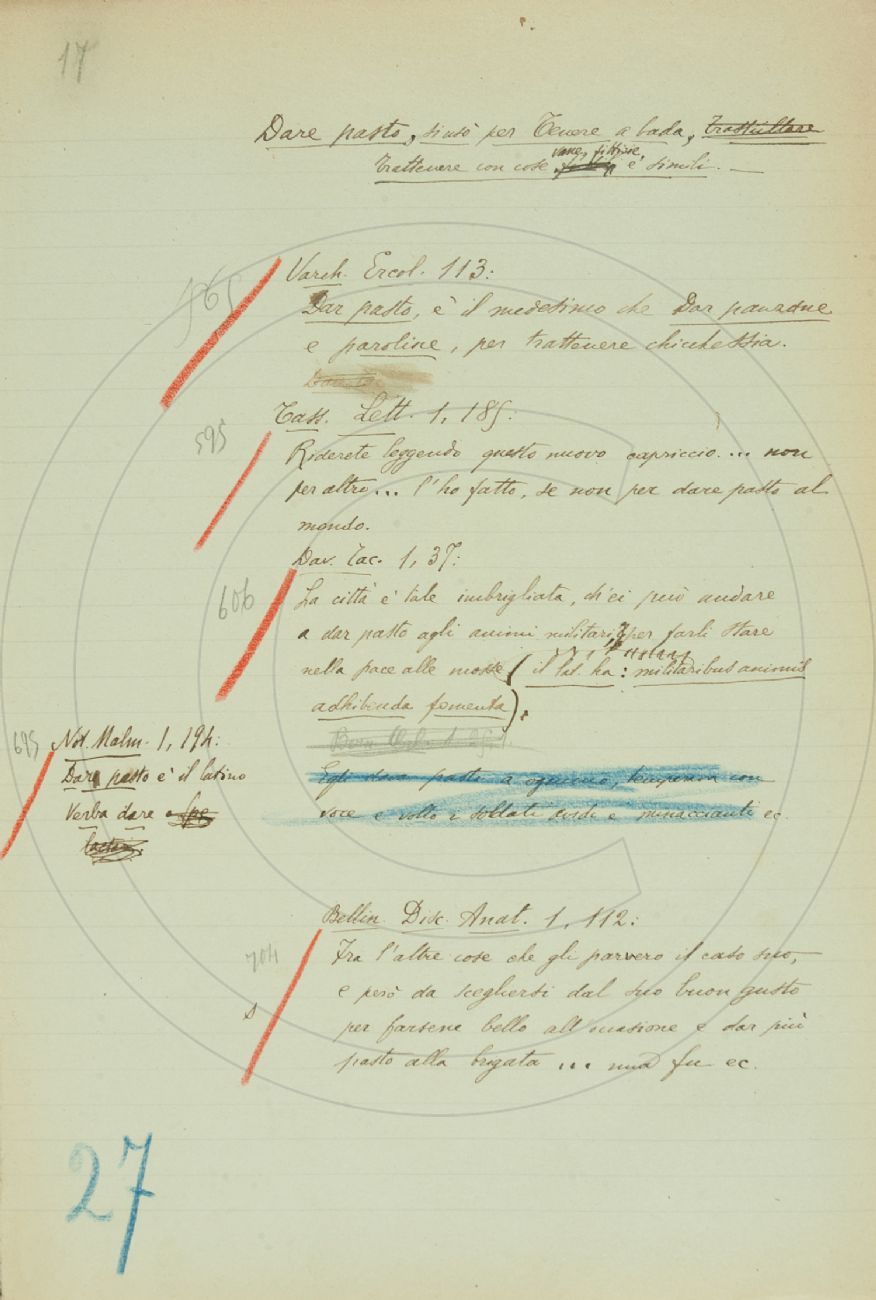 17
Dare pasto, si usò per Tenere a bada, Trastullare
vane, fittizie,
Trattenere con cose e simili. —
565
Varch. Ercol. 113:
Dar pasto, è il medesimo che Dar panzane
e paroline, per trattenere chicchessia.
Tass. Lett. 1, 185:
595
Riderete leggendo questo nuovo capriccio.... non
per altro... l'ho fatto, se non per dare pasto al
mondo.
Dav. Tac. 1, 37:
606
La città è tale imbrigliata, ch'ei può andare
a dar pasto agli animi militari, per farli stare
nella pace alle mosse (il lat. ha: militaribus animis
adhibenda fomenta).
695
Not. Malm. 1, 194:
Dare pasto è il latino
Verba dare
Egli dava pasto a ognuno, temperava con
voce e volto i soldati sordi e minaccianti ec.
Bellin. Disc. Anat. 1, 112:
704
Fra l'altre cose che gli parvero il caso suo,
e però da scegliersi dal suo buon gusto
s
per farsene bello all'occasione e dar più
pasto alla brigata ... una fu ec.
27